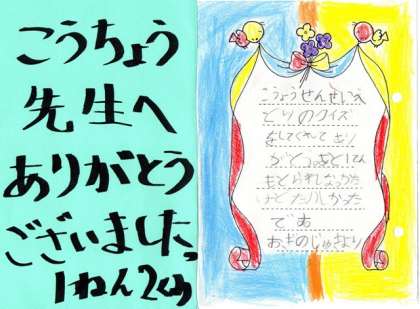 こうちょう
先生へ
ありがとう
ございました。
1ねん2くみ
こうちょうせんせいへ
とりのクイズ
をしてくれてあり
がとう。あと1てん
もとられなかった
けどたのしかった
です